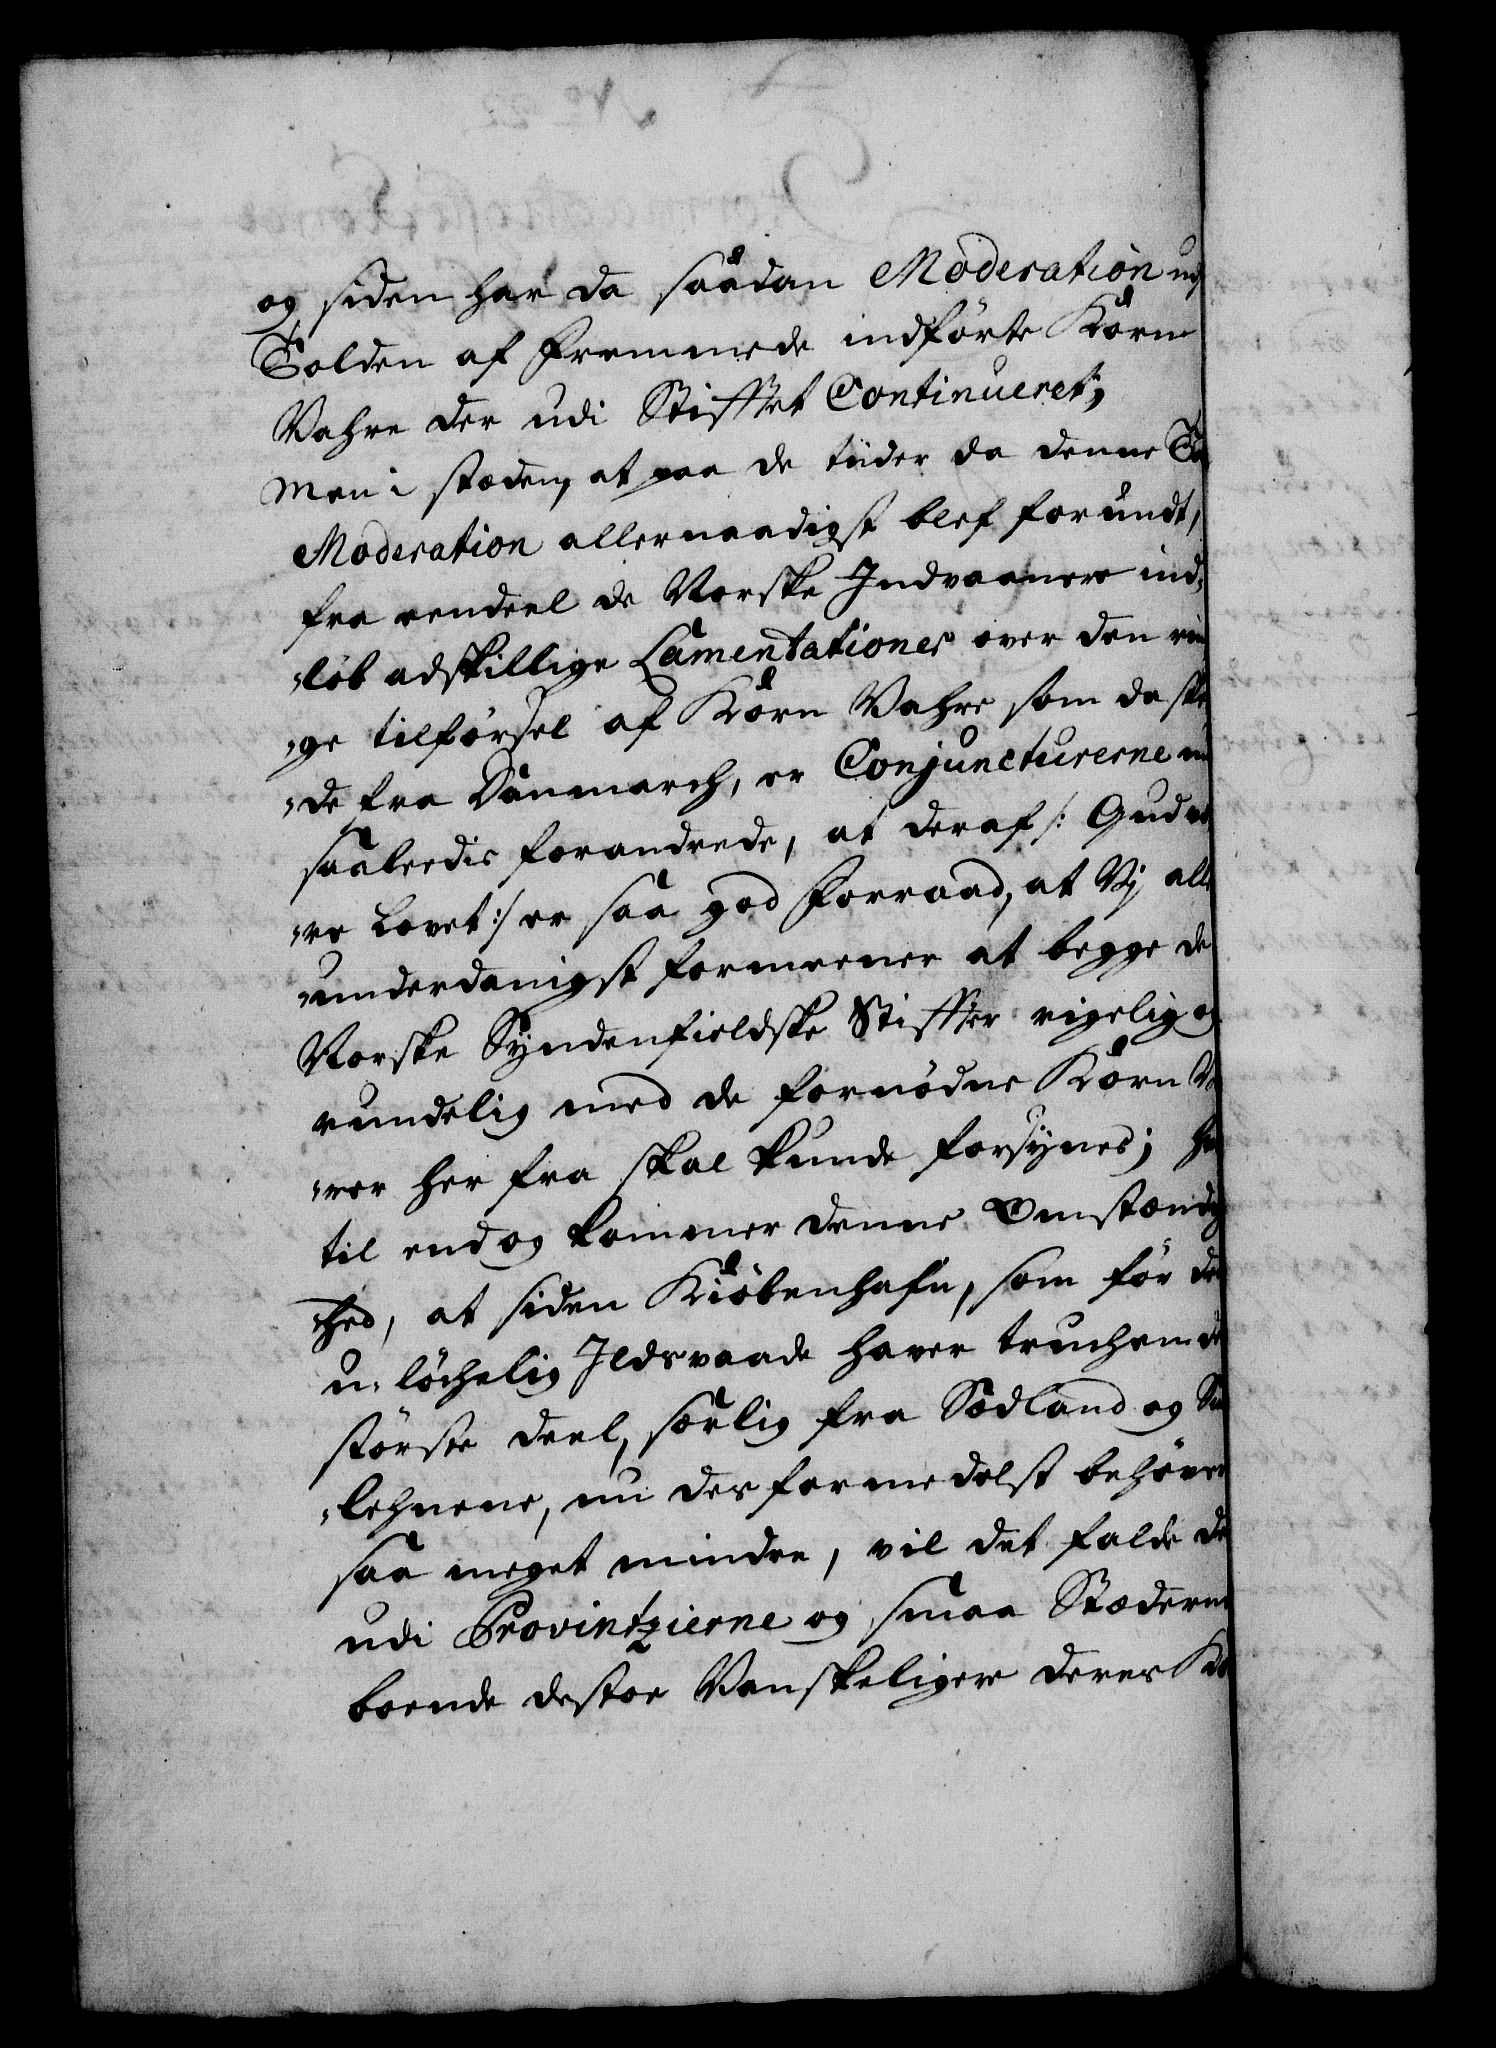 og siden har da saadan Moderation ud
Tolden af Fremmede indförte Korn
Vahre der udi Stifftet Continueret;
Men i stæden, at paa de tiider da denne To
Moderation allernaadigst blef forundt,
fra eendeel de Norske Indvaanere ind,
"löb adskillige Lamentationer over den rin
"ge tilförsel af Korn Vahre som da ske
"de fra Danmarch, er Conjuncturerne nu
saaleedis forandrede, at deraf /: Gud væ
"re Lovet :/ er saa god Forraad, at Vj aller
"underdanigst formeener at begge de
Norske Syndenfieldske Stiffter rigelig og
rundelig med de fornödne Korn Va
"rer her fra skal kunde forsynes; her
til end og kommer denne Omstændig
"hed, at siden Kiöbenhafn, som för den
u-löchelig Ildsvaade haver trucken de
störste deel, særlig fra Sædland og Sm
"lehnene, nu des formedelst behöver
saa meget mindre, vil det falde de
udi Provintzierne og smaa Stæderne
boende desto Vanskeligere deres Ko